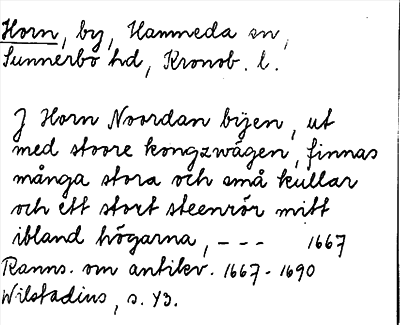 Horn, by, Hammeda sn,
Sunnerbo hd, Kronob. l.
J Horn Noordan bijen, ut
med stoore kongzwägen, finnas
många stora och små kullar
och ett stort steenrör mitt
ibland högarna, --- 1667
Ranns. om antikv. 1667-1690
Wilstadius, s. 43.